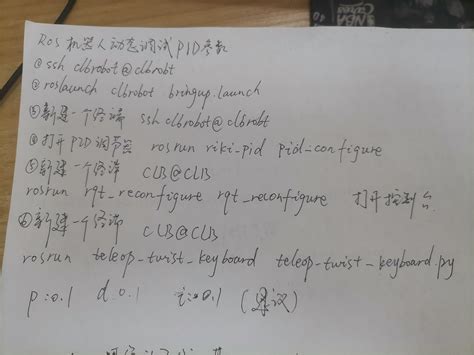 Ros 机器人动态调试PID参数
① ssh clbrobot@clbrobt
② roslaunch clbrobot bringup.launch
③ 新建一个终端 ssh clbrobot@clbrobt
④ 打开PID调节节点 rosrun riki_pid pid_configure
⑤ 新建一个终端 CLB@CLB
rosrun rqt_reconfigure rqt_reconfigure 打开控制台
⑥ 新建一个终端 CLB@CLB
rosrun teleop_twist_keyboard teleop_twist_keyboard.py
p:0.1 d:0.1 i:0.1 (建议)